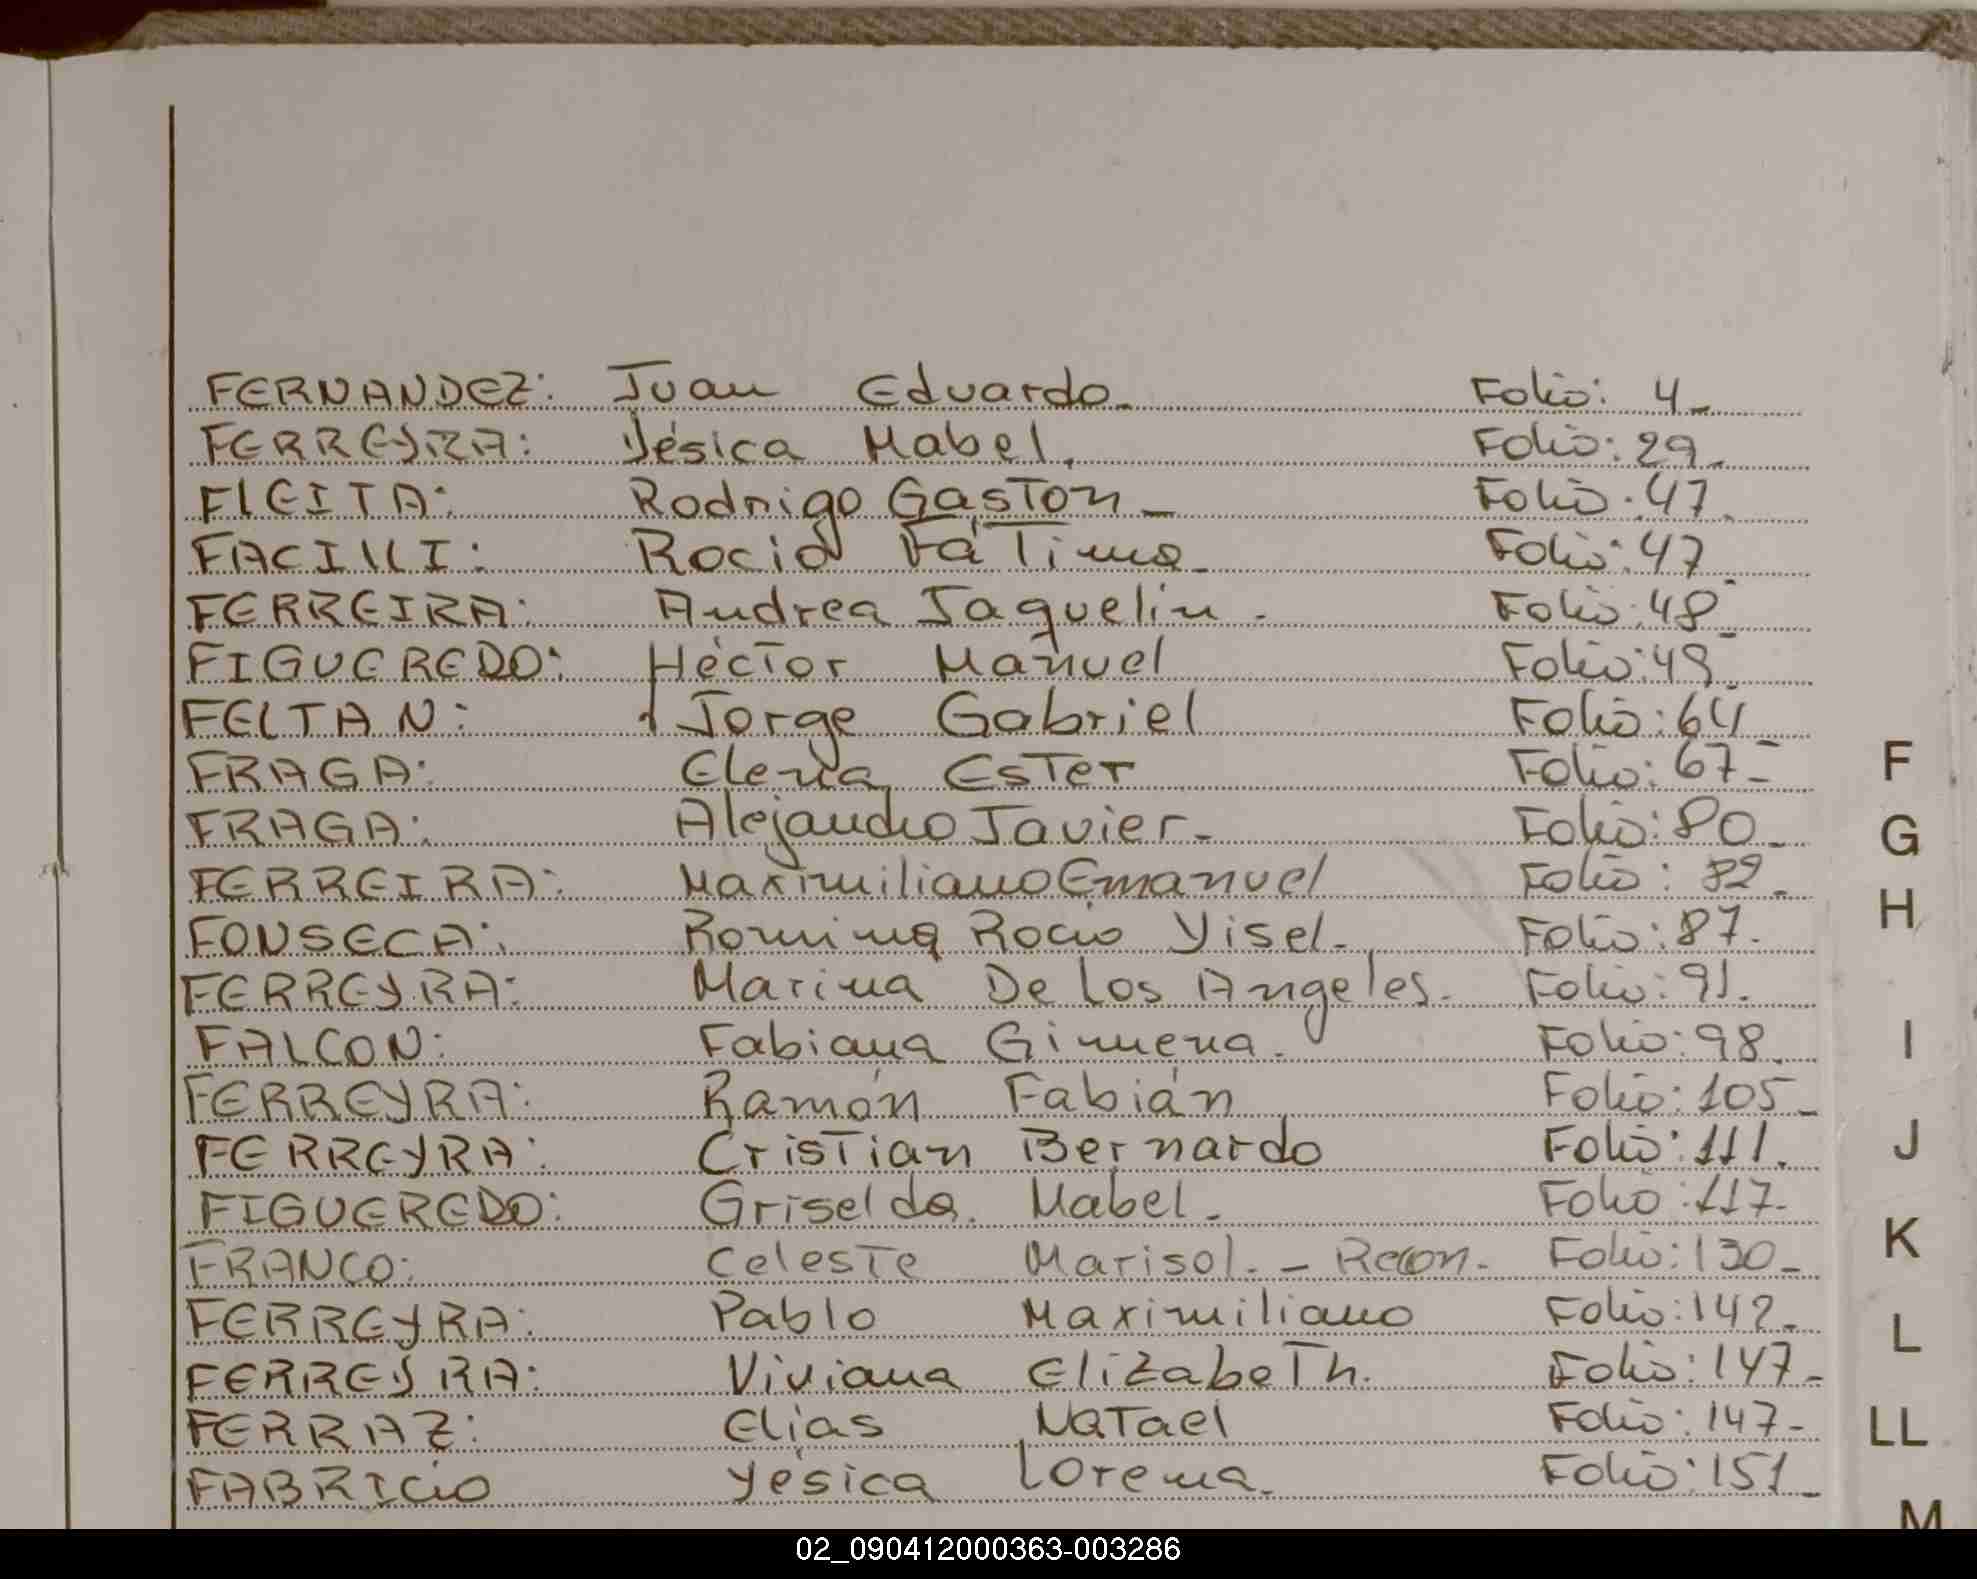 FERNANDEZ: Juan Eduardo_ Folio: 4_
FERREYRA: Yésica Mabel. Folio: 29_
FLEITA: Rodrigo Gastón_ Folio: 47_
FACILLI: Rocio Fátima_ Folio: 47_
FERREIRA: Andrea Jaquelin_ Folio: 48_
FIGUEREDO: Héctor Manuel Folio: 49_
FELTAN: Jorge Gabriel Folio: 64_
FRAGA: Elena Ester Folio: 67_
FRAGA: Alejandro Javier_ Folio: 80_
FERREIRA: Maximiliano Emanuel Folio: 82_
FONSECA: Romina Rocio Yisel_ Folio: 87.
FERREYRA: Marina De Los Angeles. Folio: 91.
FALCON: Fabiana Gimena. Folio: 98_
FERREYRA: Ramón Fabián Folio: 105_
FERREYRA: Cristian Bernardo Folio: 111.
FIGUEREDO: Griselda Mabel_ Folio: 117_
FRANCO: Celeste Marisol._ Recon. Folio: 130_
FERREYRA: Pablo Maximiliano Folio: 142_
FERREYRA: Viviana Elizabeth. Folio: 147_
FERRAZ: Elias Natael Folio: 147_
FABRICIO Yésica Lorena_ Folio: 151_
F
G
H
I
J
K
L
LL
M
02_090412000363-003286